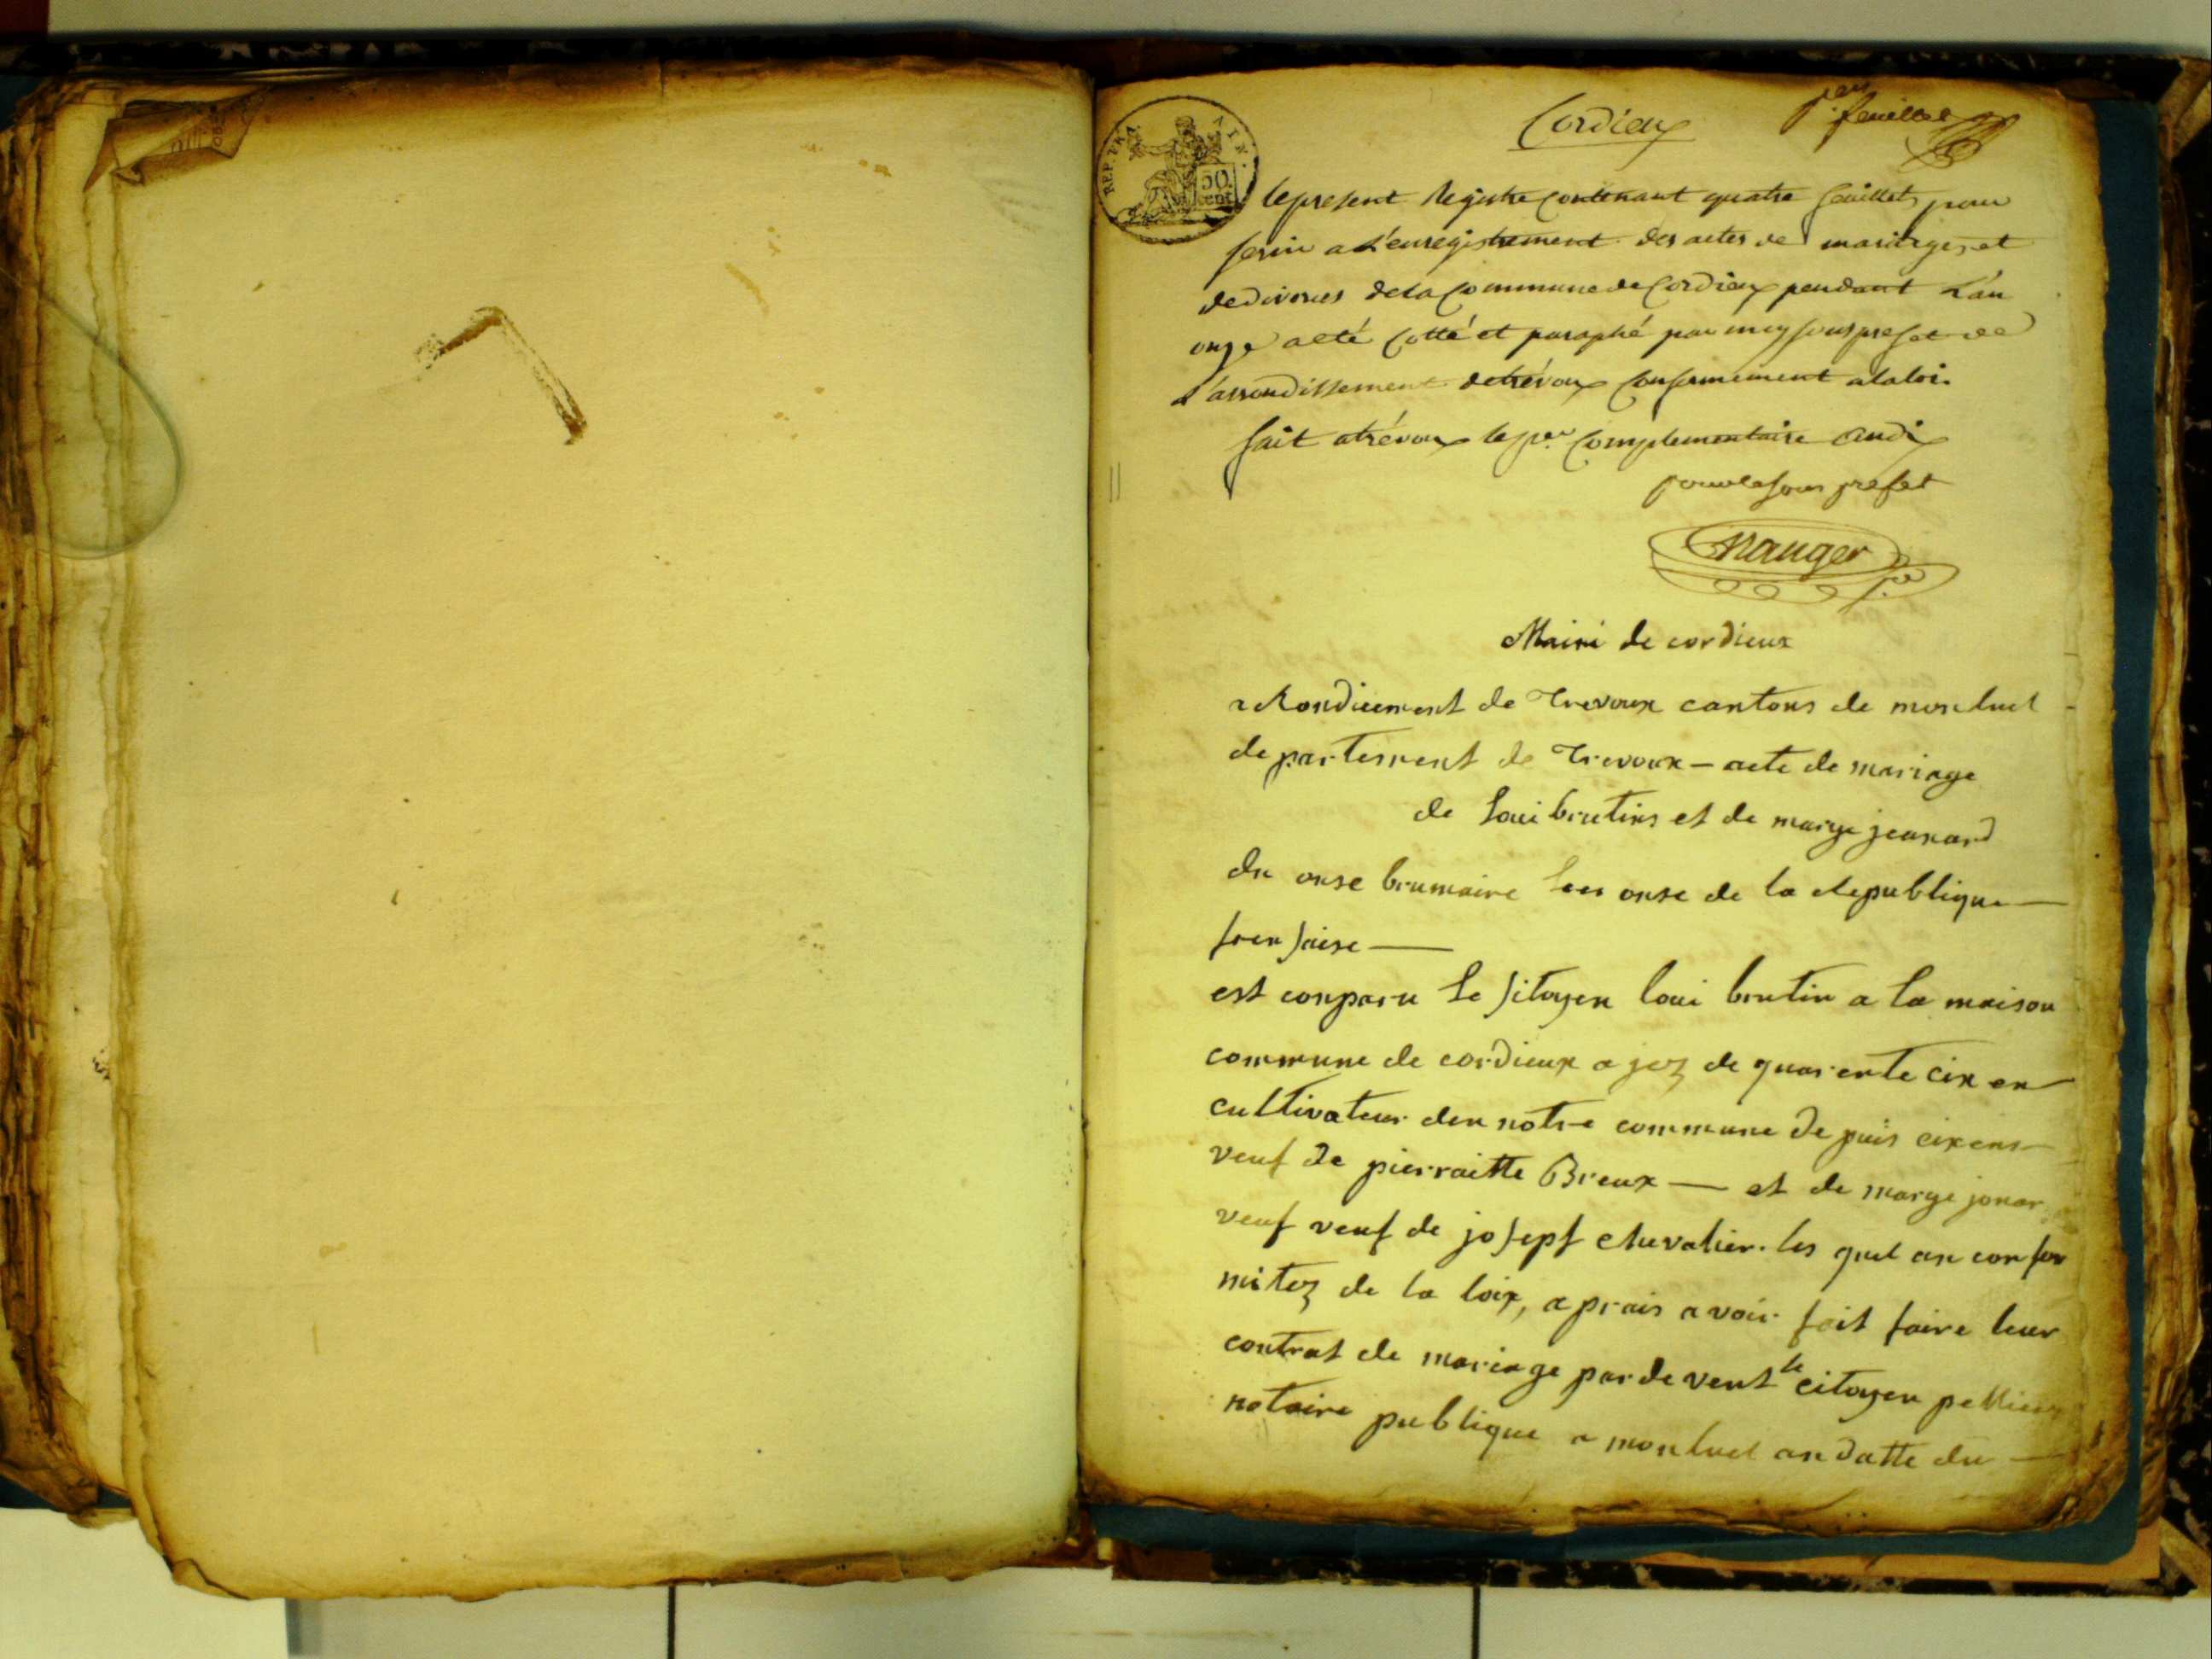 Cordieux
p.er feuillet
REP. FRA. AIN.
50
cent
le present Registre contenant quatre feuillets pour
servir a L'enregistrement des actes de mariages et
de divorces de la Commune de Cordieux pendant L'an
onze a eté cotté et paraphé par moy sous prefet de
L'arrondissement de trévoux conformement a la loi.
fait a trévoux le p.er complementaire an dix
pour le sous prefet
nauger
Mairi de cordieux
a Rondicement de Trevoux cantons de monluel
departement de Trevoux – acte de mariage
de Loui brutins et de marye jeanard
du onse brumaire Len onse de la Republique —
fren saise —
est conparu Le sitoyen loui brutin a la maison
commune de cordieux a jez de quarente cix en
cultivateur den notre commune de puis cix ens
veuf de pierraitte Breux — et de marye jonar
veuf veuf de josept chevalier. les quel an confor
mitez de la loix, a prais avoir fait faire leur
contrat de mariage par de vent le citoyen
notaire publique a monluel an datte du —